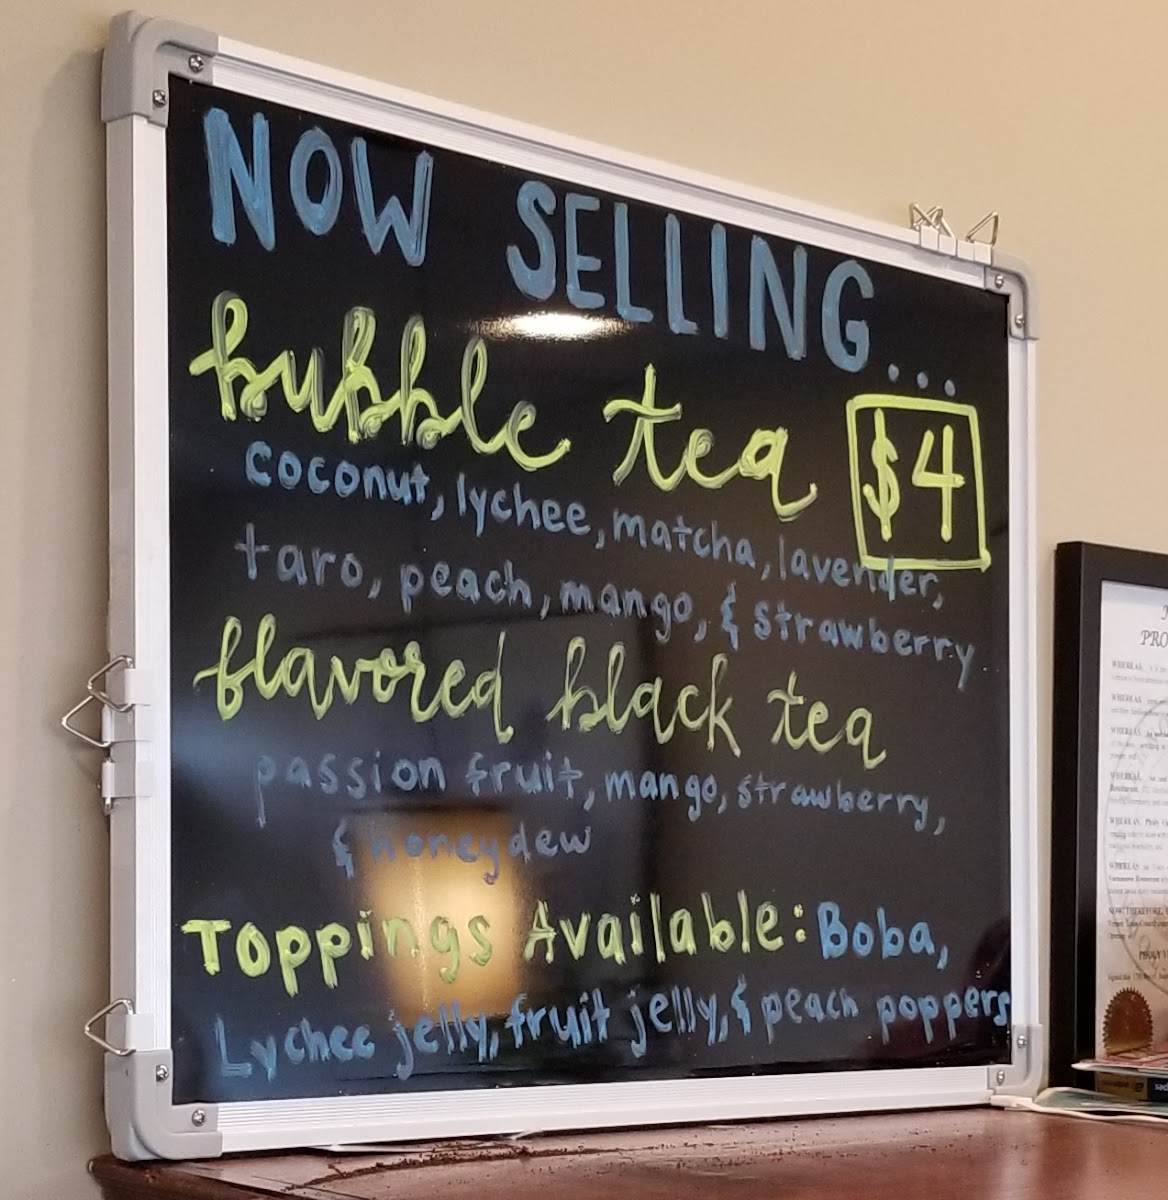 NOW SELLING...
bubble tea $4
coconut, lychee, matcha, lavender,
taro, peach, mango, & strawberry
flavored black tea
passion fruit, mango, strawberry,
& honeydew
Toppings Available: Boba,
Lychee jelly, fruit jelly, & peach poppers
PRO
WHEREAS,
WHEREAS,
WHEREAS,
WHEREAS,
WHEREAS,
WHEREAS
NOW THEREFORE,